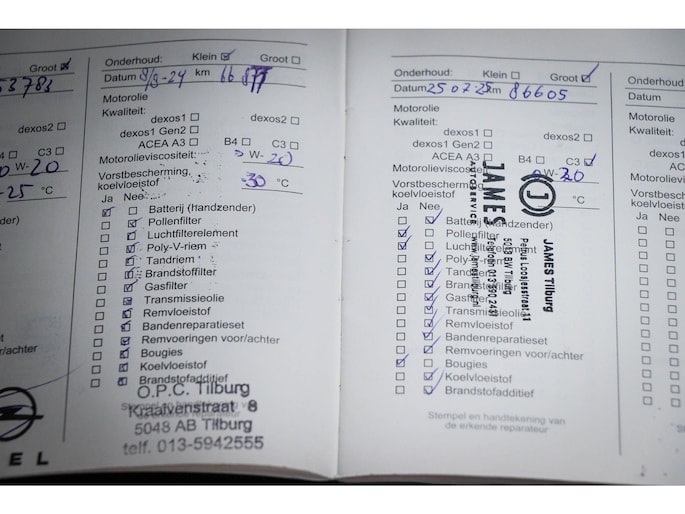 Groot
53783
W-20
-25 °C
zender)
voor/achter
EL
Onderhoud: Klein Groot
Datum 8/8-24 km 66 877
Motorolie
Kwaliteit:
dexos1 dexos2
dexos1 Gen2
ACEA A3 B4 C3
Motorolieviscositeit: 0 W-20
Vorstbescherming
koelvloeistof -30 °C
Ja Nee
Batterij (handzender)
Pollenfilter
Luchtfilterelement
Poly-V-riem
Tandriem
Brandstoffilter
Gasfilter
Transmissieolie
Remvloeistof
Bandenreparatieset
Remvoeringen voor/achter
Bougies
Koelvloeistof
Brandstofadditief
O.P.C. Tilburg
Kraaivenstraat 8
5048 AB Tilburg
telf. 013-5942555
Onderhoud: Klein Groot
Datum 25 07 25 km 86605
Motorolie
Kwaliteit:
dexos1 dexos2
dexos1 Gen2
ACEA A3 B4 C3
Motorolieviscositeit: W-20
Vorstbescherming
koelvloeistof °C
Ja Nee
Batterij (handzender)
Pollenfilter
Luchtfilterelement
Poly-V-riem
Tandriem
Brandstoffilter
Gasfilter
Transmissieolie
Remvloeistof
Bandenreparatieset
Remvoeringen voor/achter
Bougies
Koelvloeistof
Brandstofadditief
JAMES
AUTOSERVICE
J
JAMES Tilburg
Petrus Loosjesstraat 11
5013 BW Tilburg
Telefoon 013 890 2481
www.jamestilburg.nl
Stempel en handtekening van
de erkende reparateur
Onderhoud
Datum
Motorolie
Kwaliteit:
Motorolieviscos
Vorstbeschermi
koelvloeistof
Ja Nee